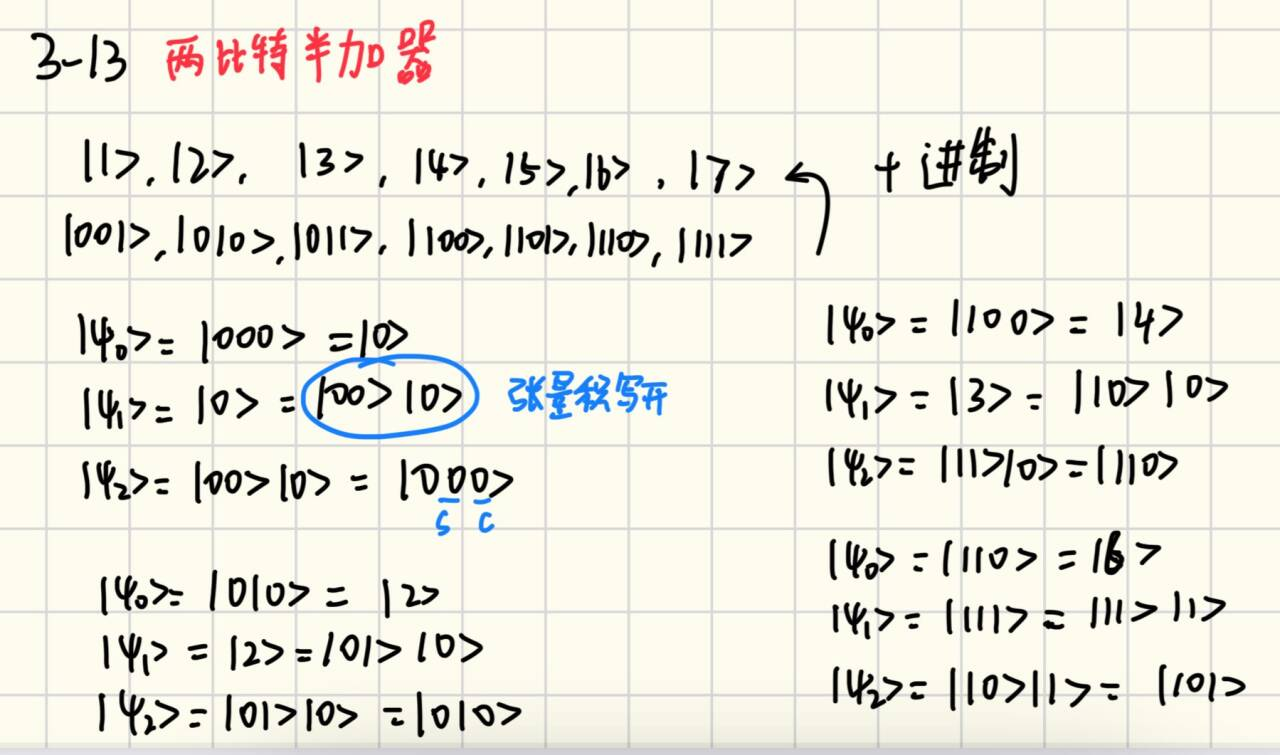 3-13 两比特半加器
|1>, |2>, |3>, |4>, |5>, |6>, |7> 十进制
|001>, |010>, |011>, |100>, |101>, |110>, |111>
|ψ₀> = |000> = |0>
|ψ₁> = |0> = |00> |0> 张量积写开
|ψ₂> = |00> |0> = |000>
S C
|ψ₀> = |010> = |2>
|ψ₁> = |2> = |01> |0>
|ψ₂> = |01> |0> = |010>
|ψ₀> = |100> = |4>
|ψ₁> = |3> = |10> |0>
|ψ₂> = |11> |0> = |110>
|ψ₀> = |110> = |6>
|ψ₁> = |111> = |11> |1>
|ψ₂> = |10> |1> = |101>